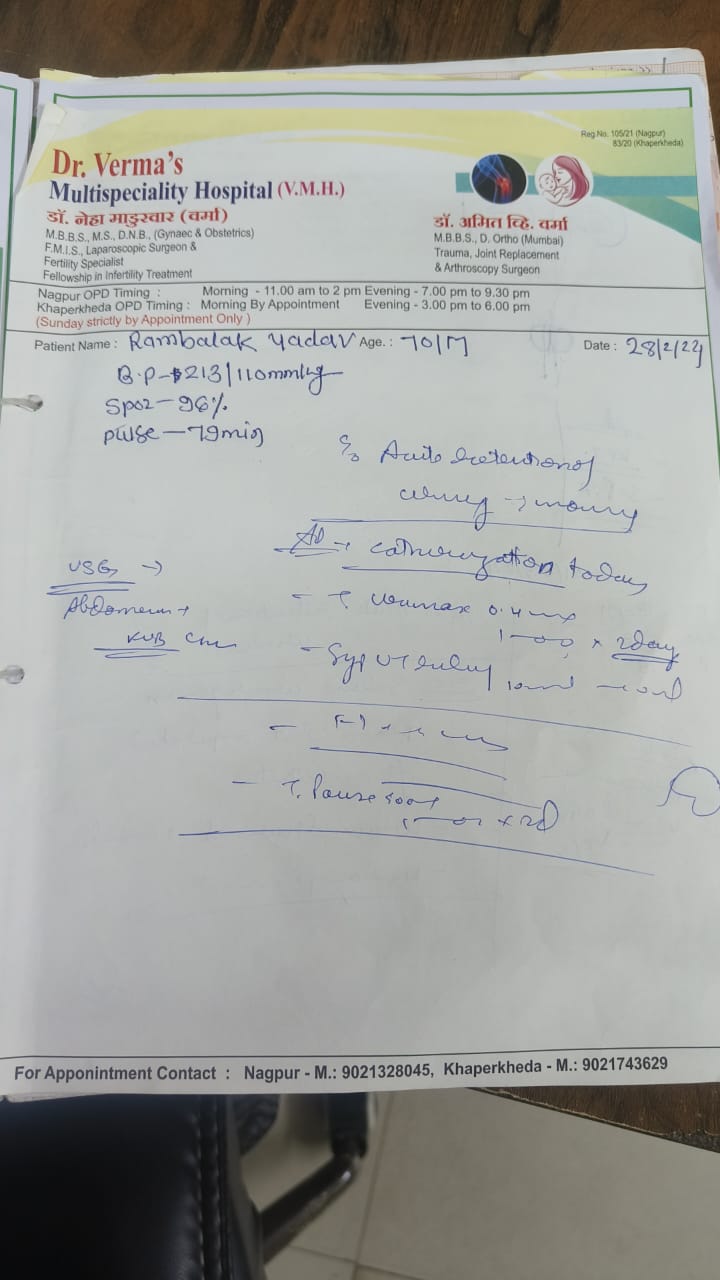 Reg.No. 105/21 (Nagpur)
83/20 (Khaperkheda)
Dr. Verma's
Multispeciality Hospital (V.M.H.)
डॉ. नेहा माडुरवार (वर्मा)
M.B.B.S., M.S., D.N.B., (Gynaec & Obstetrics)
F.M.I.S., Laparoscopic Surgeon &
Fertility Specialist
Fellowship in Infertility Treatment
डॉ. अमित व्हि. वर्मा
M.B.B.S., D. Ortho (Mumbai)
Trauma, Joint Replacement
& Arthroscopy Surgeon
Nagpur OPD Timing : Morning - 11.00 am to 2 pm Evening - 7.00 pm to 9.30 pm
Khaperkheda OPD Timing : Morning By Appointment Evening - 3.00 pm to 6.00 pm
(Sunday strictly by Appointment Only )
Patient Name : Rambalak Yadav Age. : 70/M Date : 28/2/24
B.P - 213/110mmHg
SpO2 - 96%
pulse - 79min
retention of
catheterization today
USG →
Abdomen +
KUB
0.4
x 2day
Syp
For Apponintment Contact : Nagpur - M.: 9021328045, Khaperkheda - M.: 9021743629